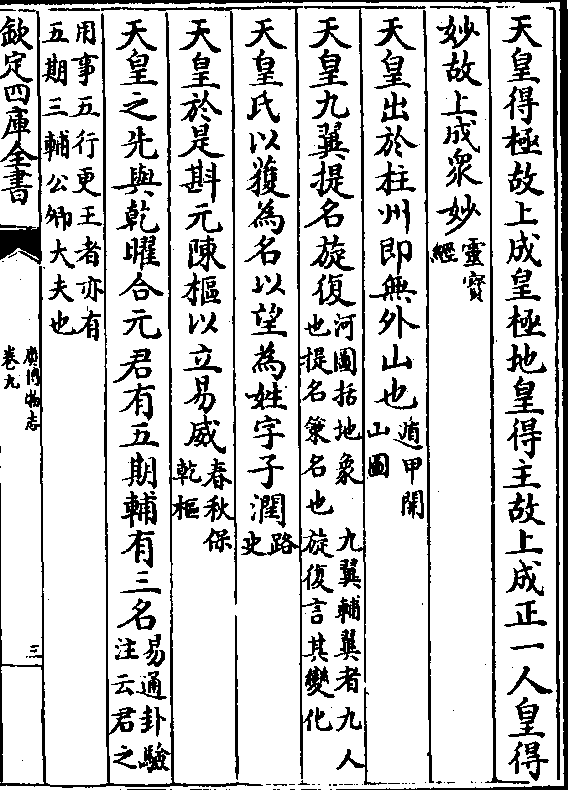 天皇得極故上成皇極地皇得主故上成正一人皇得
妙故上成衆妙靈寳經
天皇出於柱州即無外山也遁甲開山圖
天皇九翼提名旋復河圖括地象 九翼輔翼者九人也提名籙名也旋復言其變化
天皇氏以獲為名以望為姓字子潤路史
天皇於是斟元陳樞以立易威春秋保乾樞
天皇之先與乾曜合元君有五期輔有三名易通卦驗注云君之
用事五行更王者亦有五期三輔公卿大夫也
欽定四庫全書
廣博物志
卷九
三